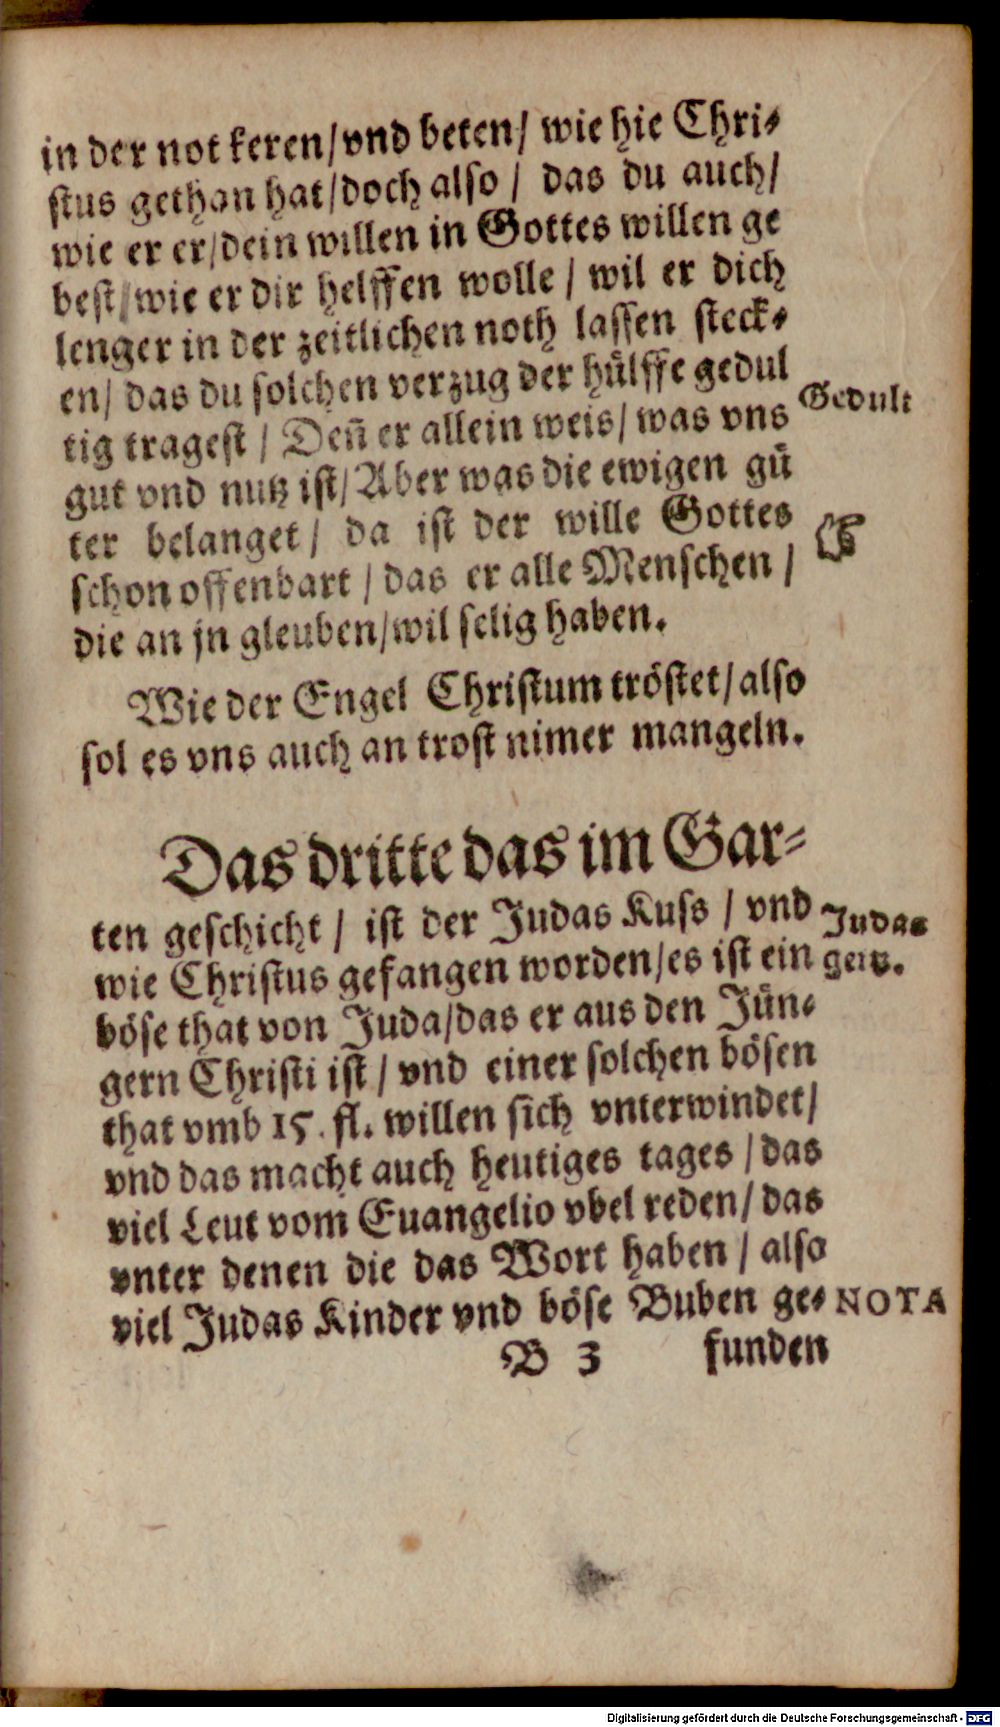 in der not keren/vnd beten/ wie hie Chri⸗
stus gethan hat/doch also / das du auch/
wie er er/dein willen in Gottes willen ge
best/wie er dir helffen wolle / wil er dich
lenger in der zeitlichen noth lassen steck⸗
en/ das du solchen verzug der hülffe gedul
tig tragest / Deñ er allein weis/ was vns
Gedult
gut vnd nutz ist/Aber was die ewigen gü
ter belanget/ da ist der wille Gottes
☞
schon offenbart / das er alle Menschen /
die an jn gleuben/wil selig haben.
Wie der Engel Christum tröstet/also
sol es vns auch an trost nimer mangeln.
Das dritte das im Gar⸗
ten geschicht / ist der Judas Kuss / vnd
Judas
wie Christus gefangen worden/es ist ein
geitz.
böse that von Juda/das er aus den Jün⸗
gern Christi ist / vnd einer solchen bösen
that vmb 15. fl. willen sich vnterwindet/
vnd das macht auch heutiges tages / das
viel Leut vom Euangelio vbel reden/ das
vnter denen die das Wort haben / also
viel Judas Kinder vnd böse Buben ge⸗
NOTA
B 3 funden
Digitalisierung gefördert durch die Deutsche Forschungsgemeinschaft - DFG